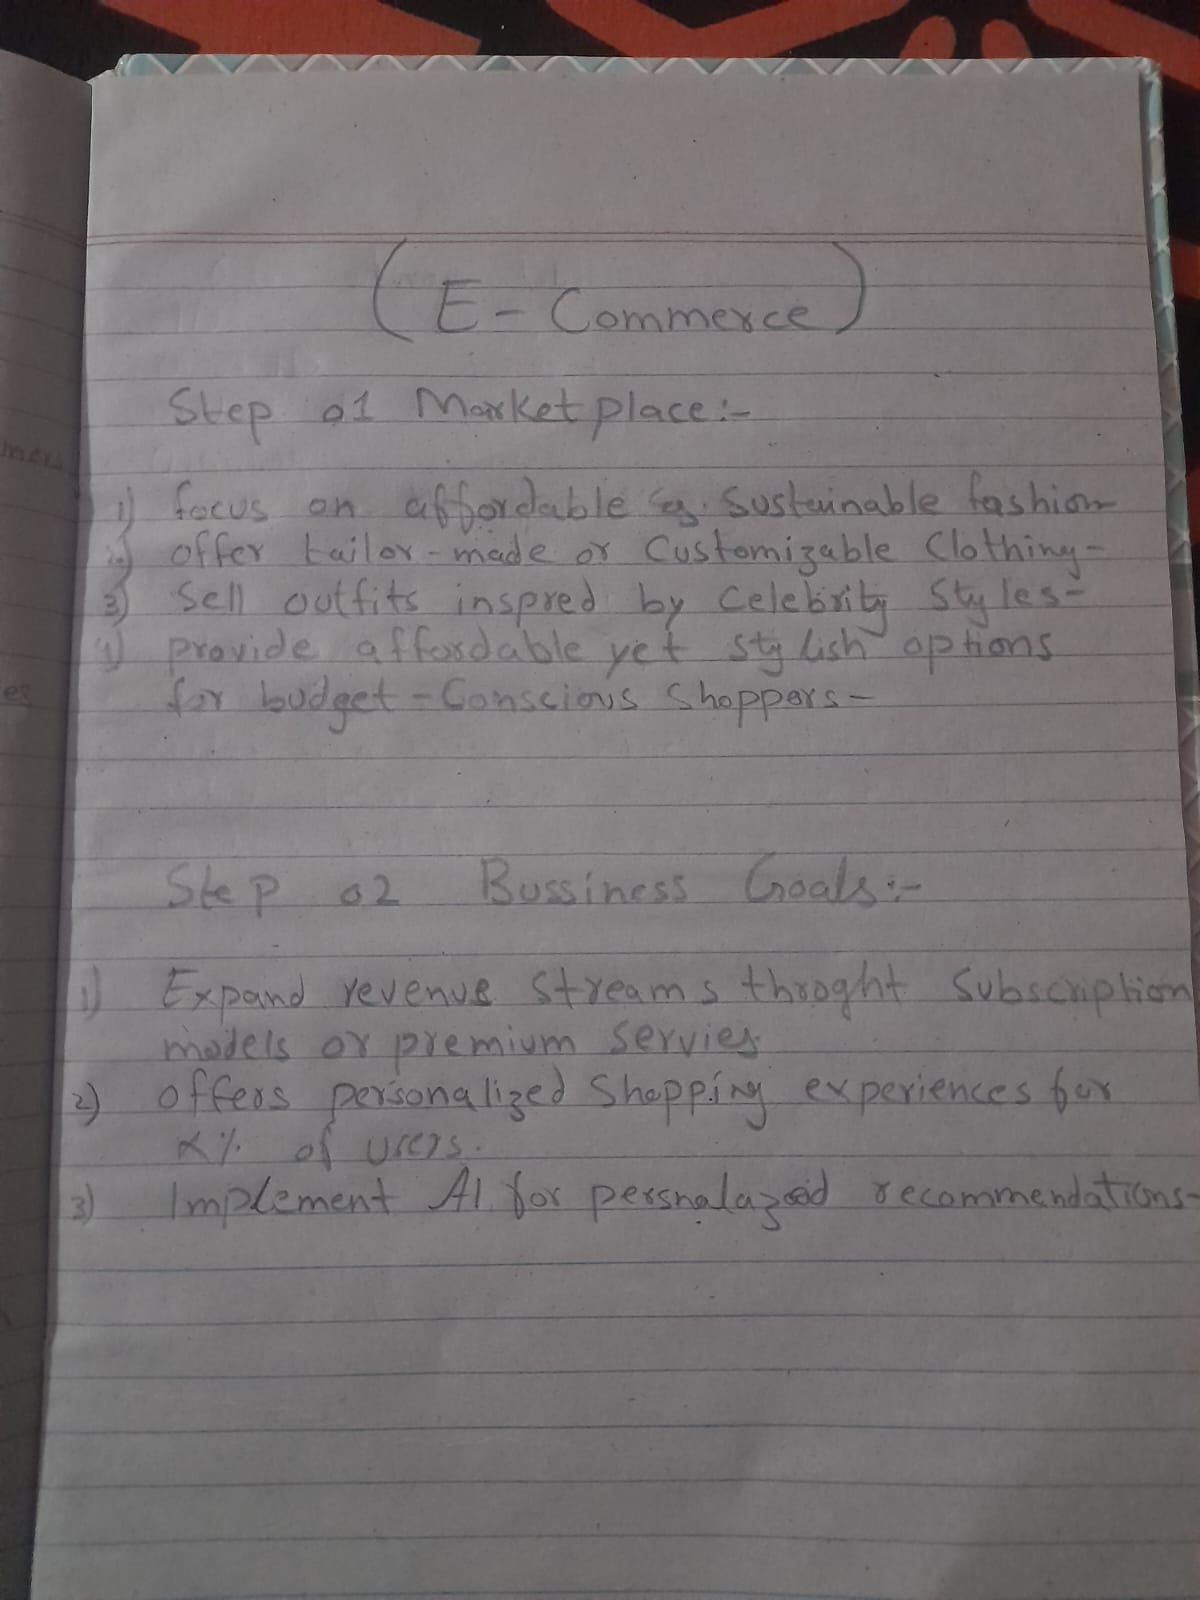 (E - Commerce)
Step 01 Market place:-
1) focus on affordable & Sustainable fashion
2) offer tailor-made or Customizable Clothing-
3) Sell outfits inspred by Celebrity Styles-
4) provide affordable yet stylish options
for budget - Conscious Shoppers-
Step 02 Bussiness Goals:-
1) Expand revenue Streams throght Subscription
models or premium servies.
2) offers personalized Shopping experiences for
X% of users.
3) Implement AI for persnalazed recommendations-
mers
es